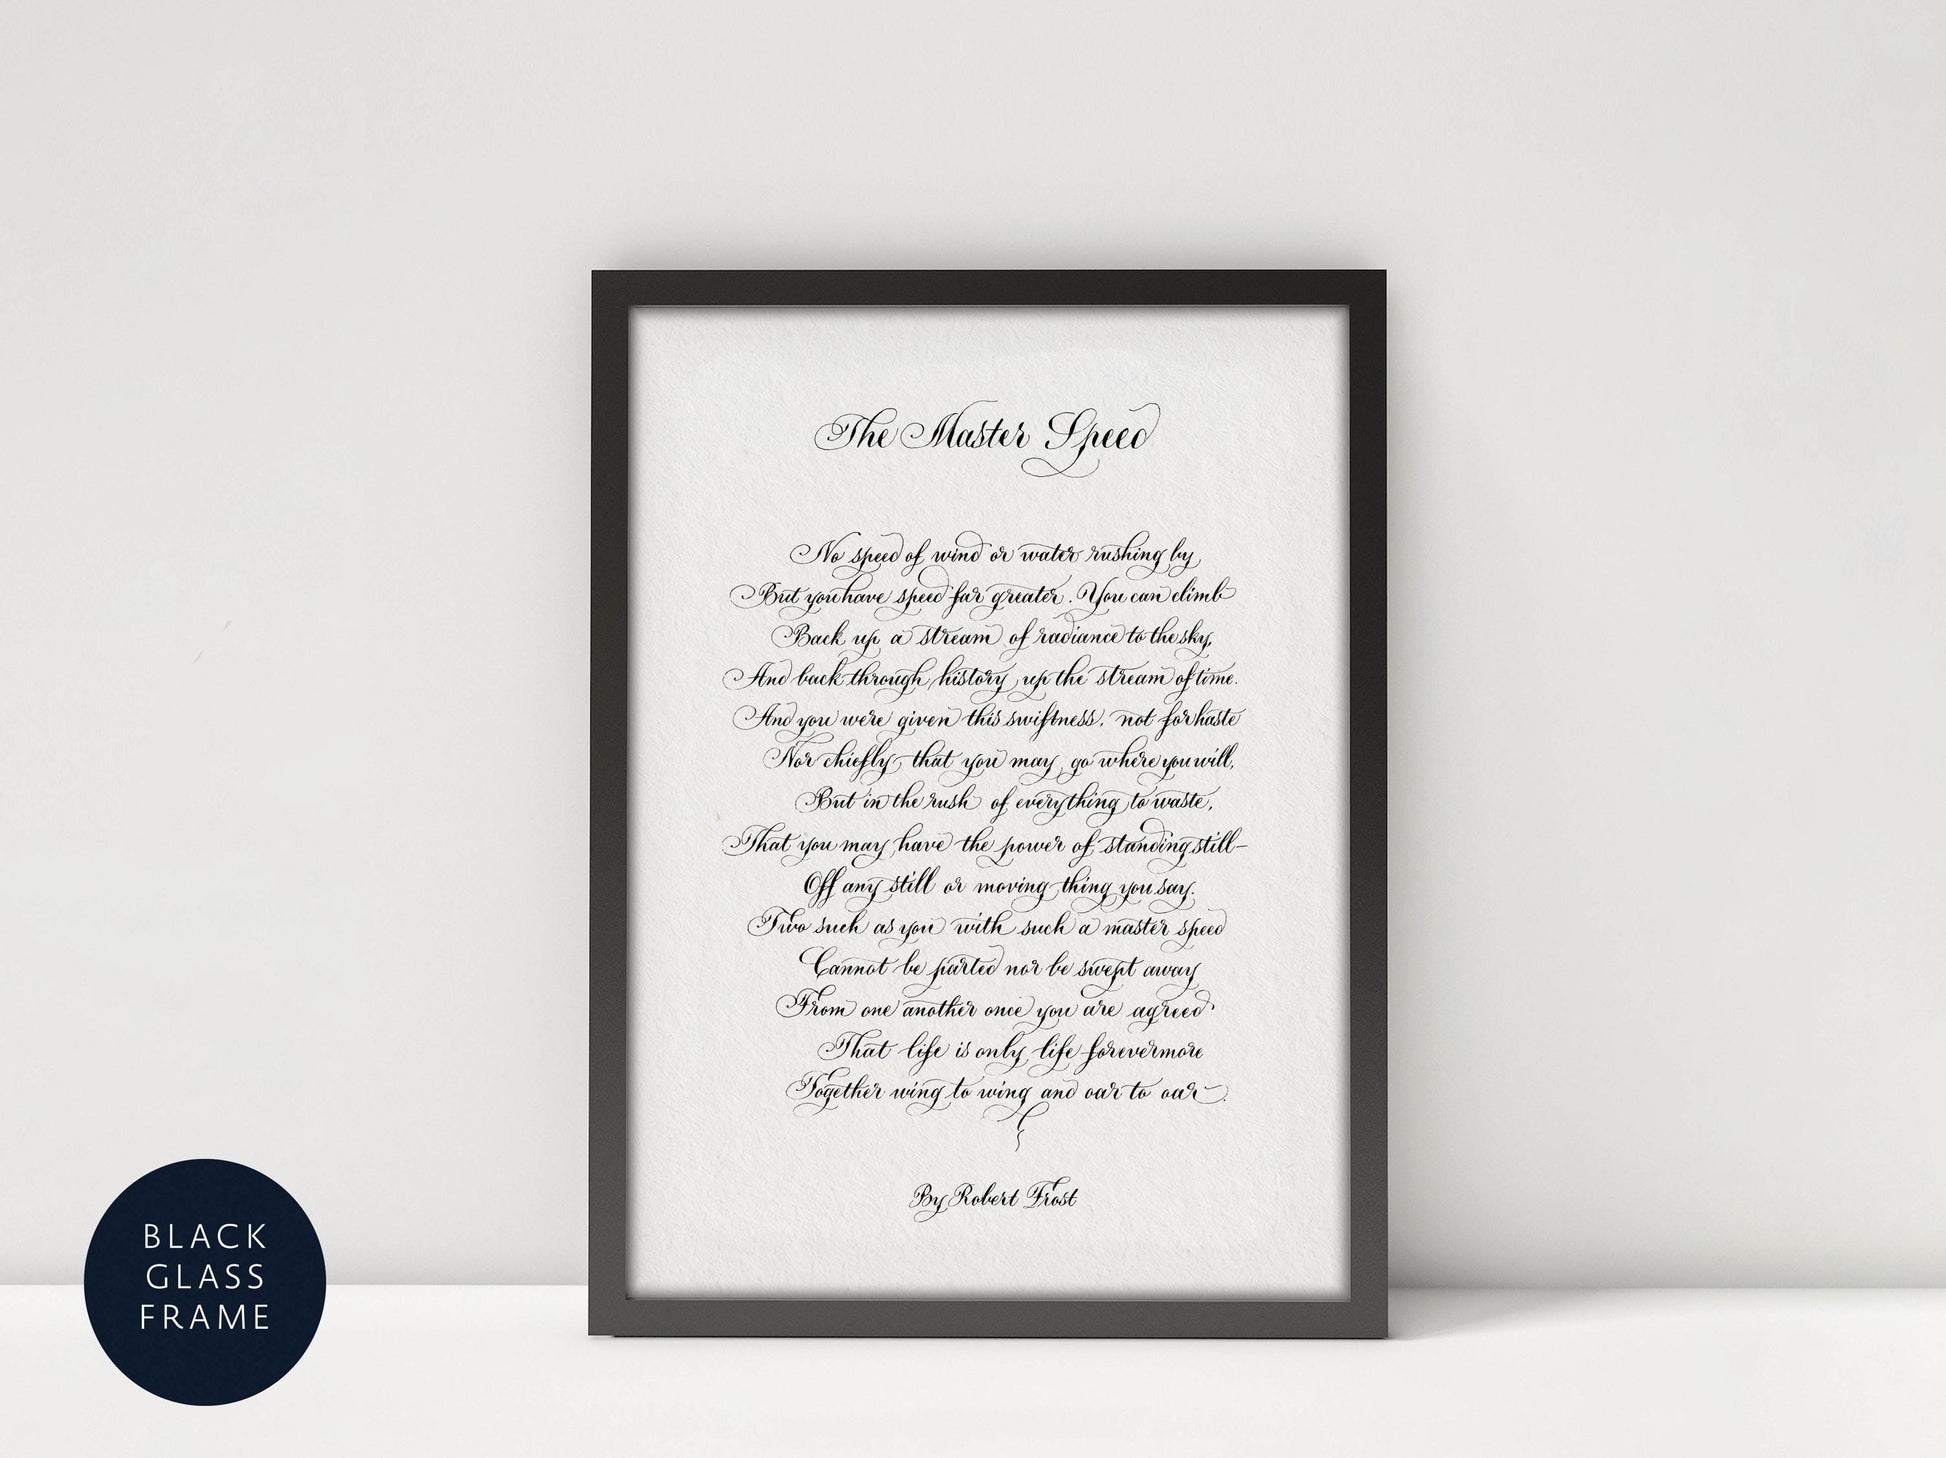 The Master Speed
No speed of wind or water rushing by
But you have speed far greater. You can climb
Back up a stream of radiance to the sky,
And back through history up the stream of time.
And you were given this swiftness, not for haste
Nor chiefly that you may go where you will,
But in the rush of everything to waste,
That you may have the power of standing still–
Off any still or moving thing you say.
Two such as you with such a master speed
Cannot be parted nor be swept away
From one another once you are agreed
That life is only life forevermore
Together wing to wing and oar to oar.
By Robert Frost
BLACK
GLASS
FRAME